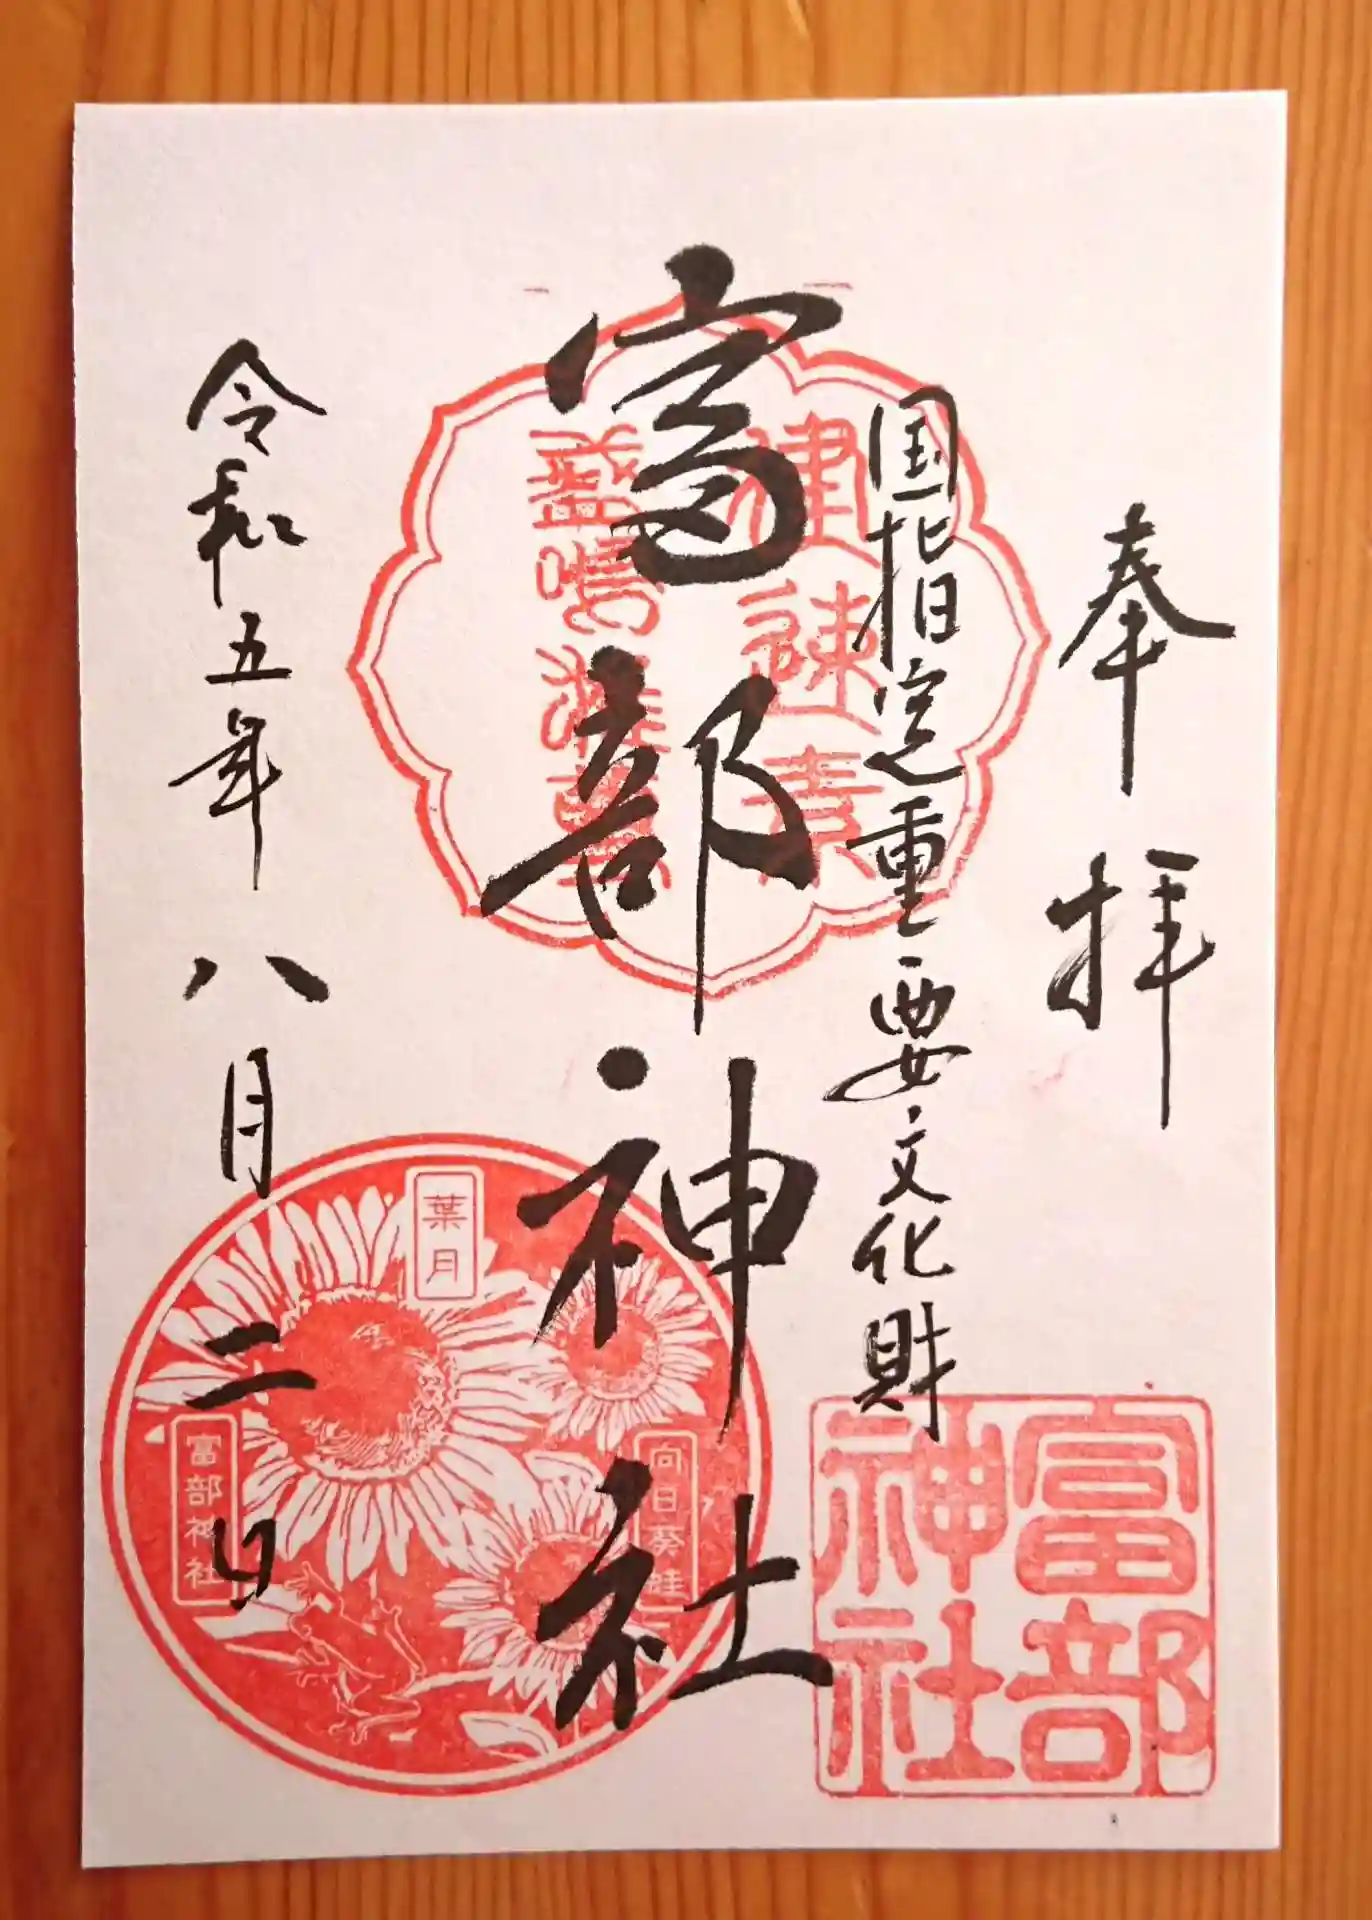 奉拝
国指定重要文化財
富部神社
令和五年八月二日
建速素
盞嗚雄尊
葉月
向日葵蛙
富部神社
富部
神社